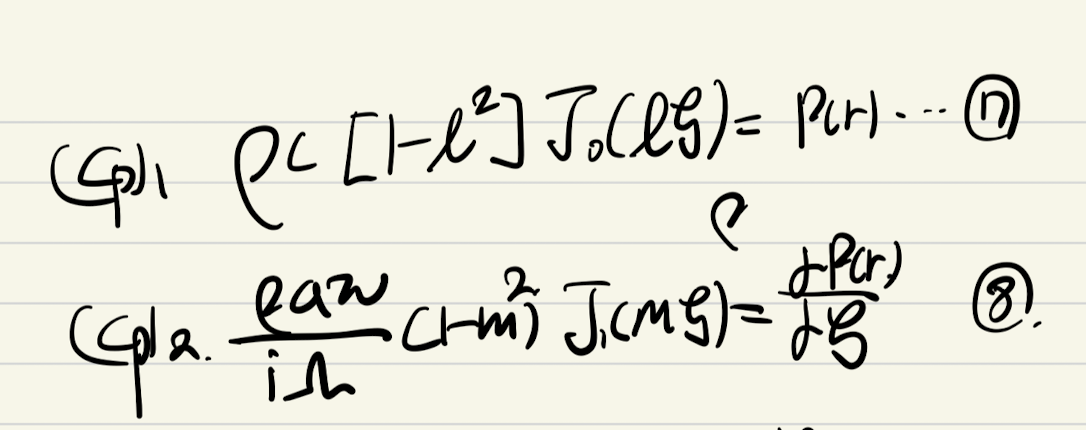 (Cp)1 ρc [1-l²] J₀(lξ) = P(r) ... ⑰
ρ
(Cp)2. ρaw/iΩ (1-m²) J₁(mξ) = dP(r)/dξ ⑧.